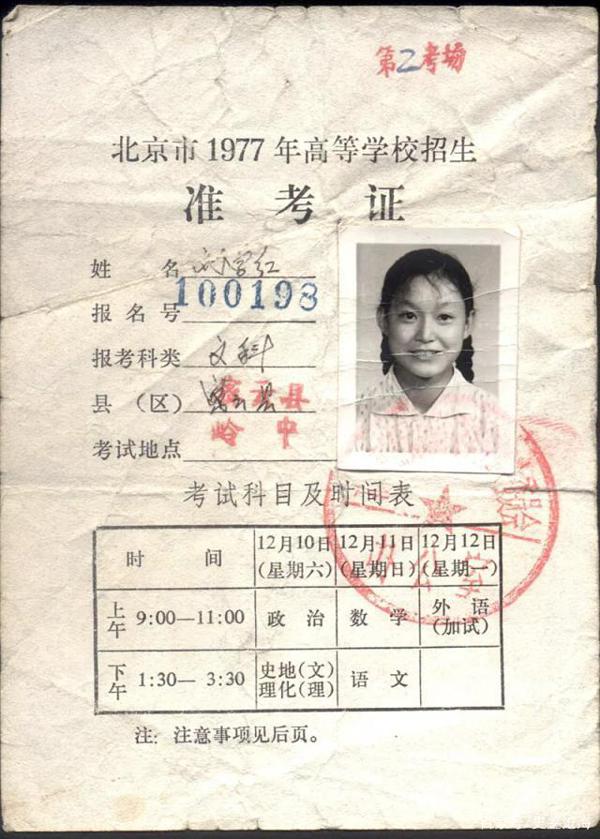 第2考场
北京市1977年高等学校招生
准考证
姓名 刘学红
报名号 100198
报考科类 文科
县（区） 密云县 密云县
考试地点 岭中
考试科目及时间表
时间 12月10日（星期六） 12月11日（星期日） 12月12日（星期一）
上午 9:00—11:00 政治 数学 外语（加试）
下午 1:30—3:30 史地（文）理化（理） 语文
注：注意事项见后页。